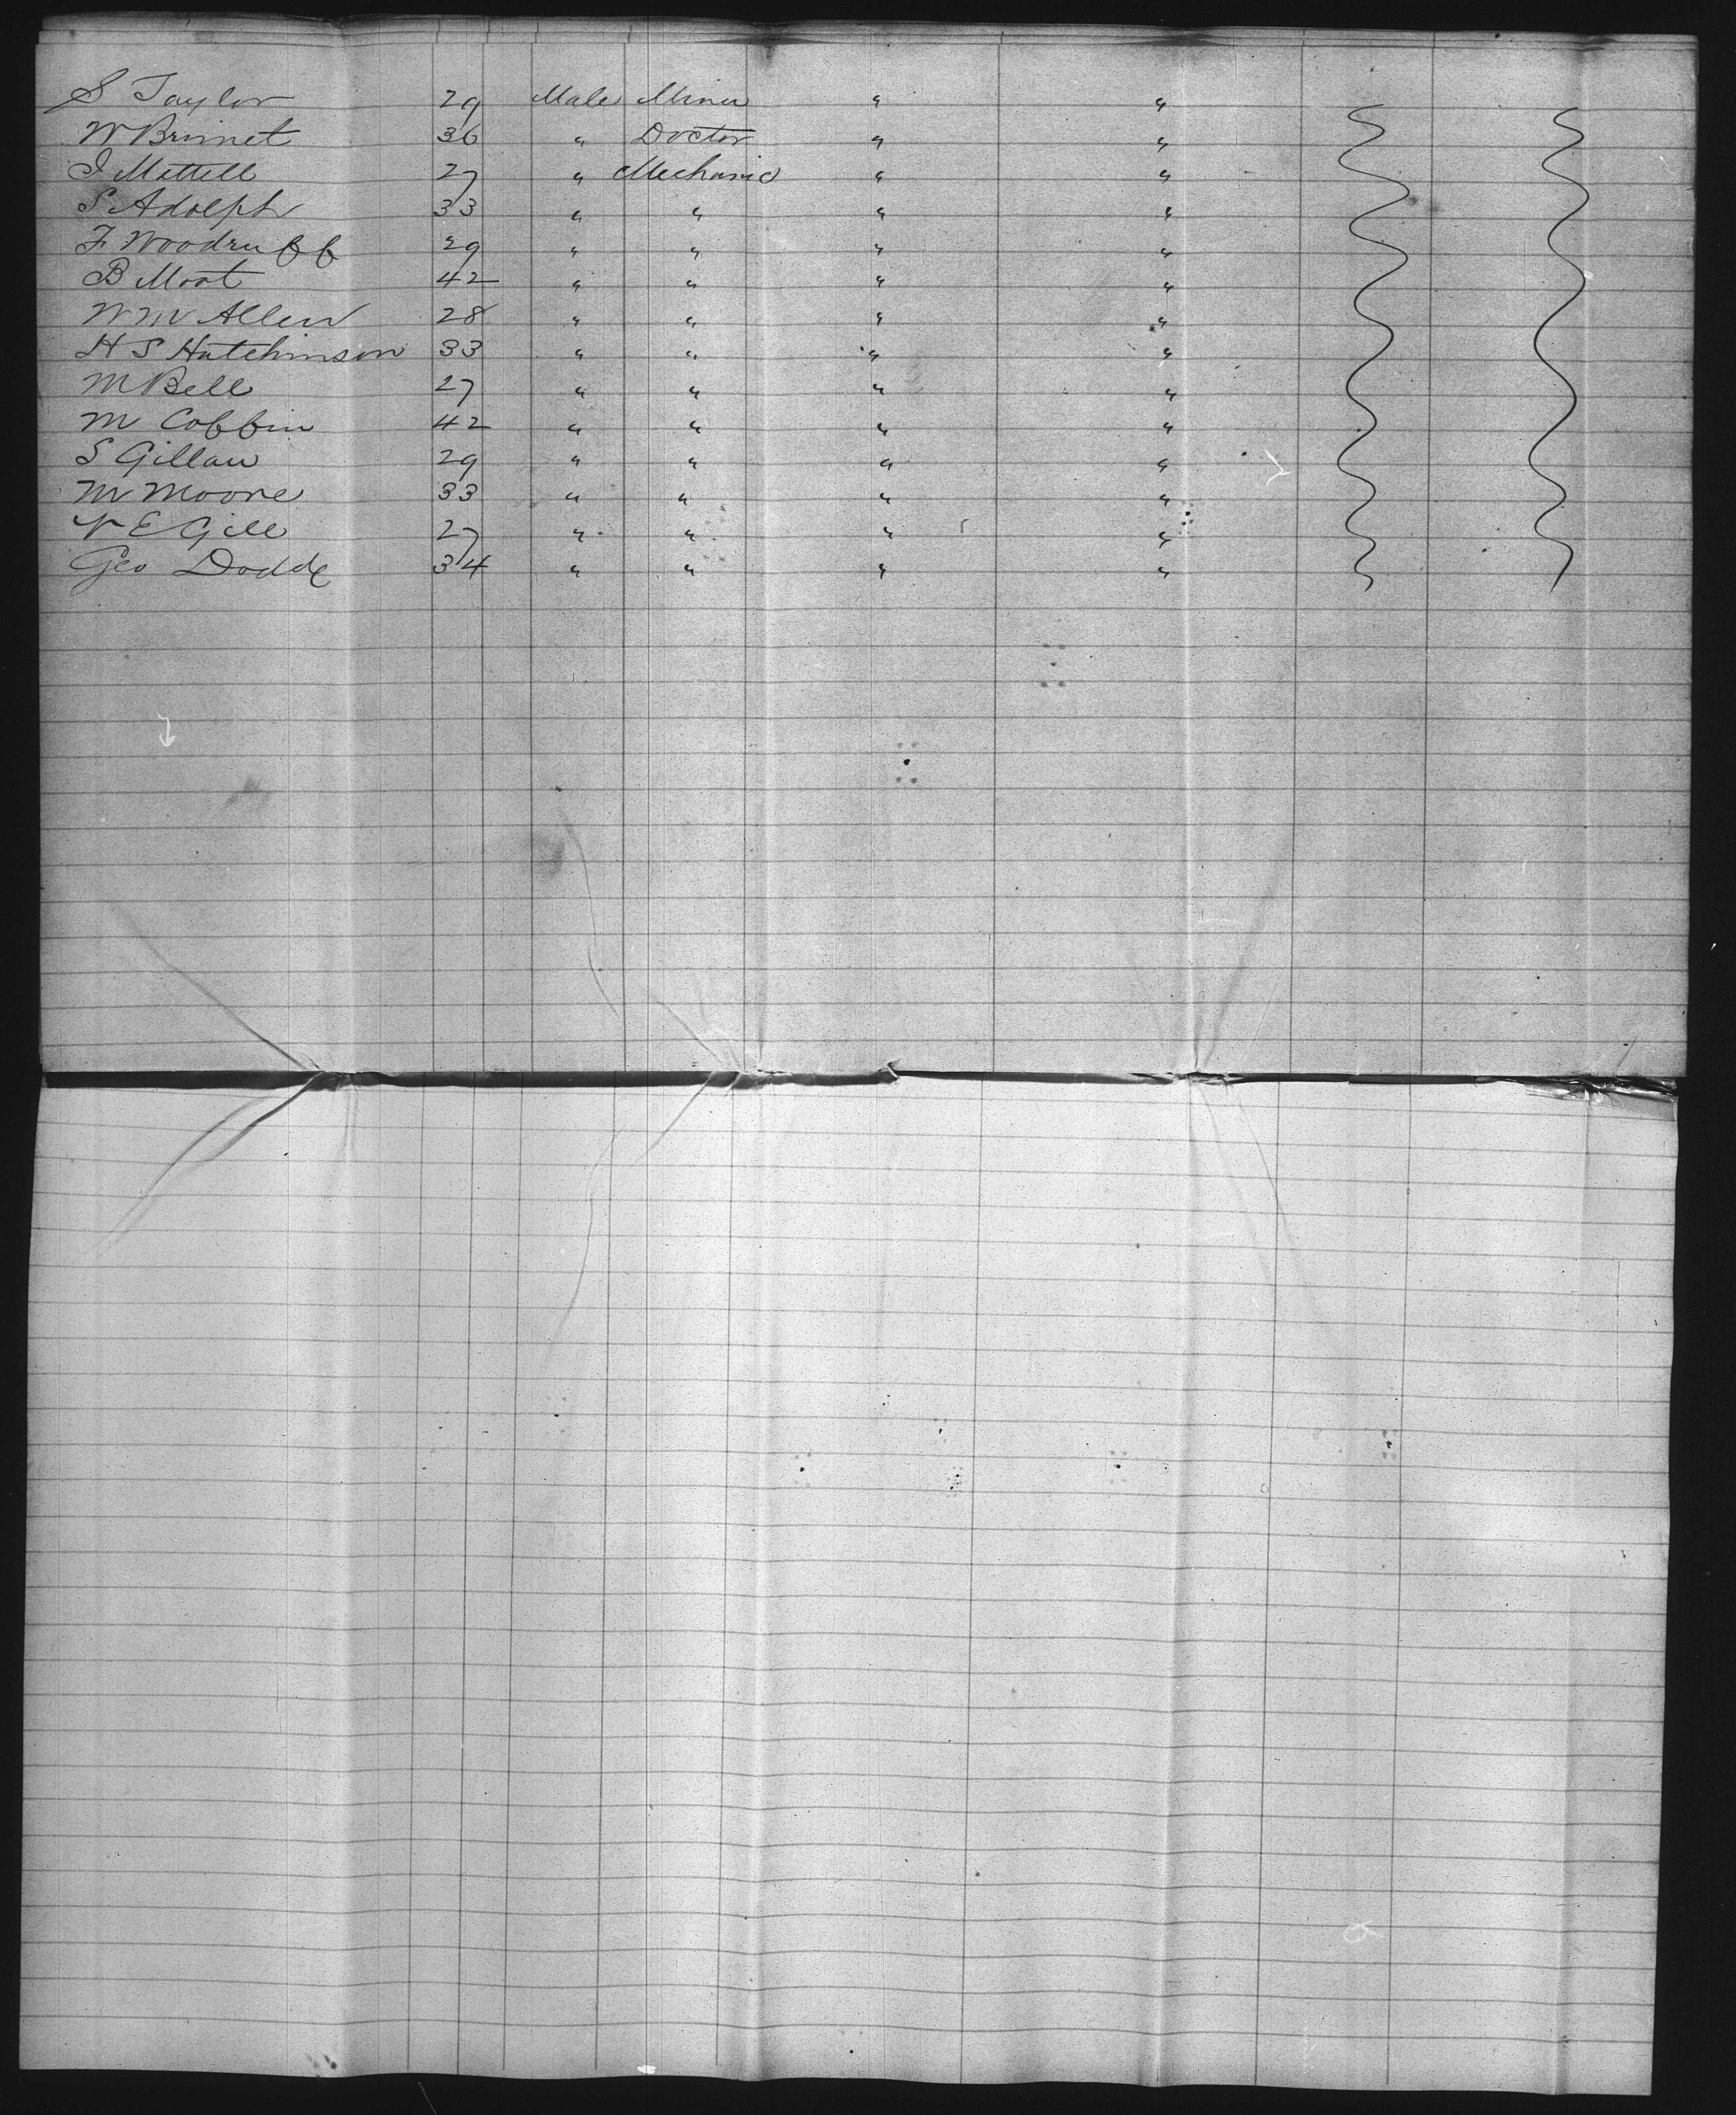 S Taylor 29 Male Miner " "
W Brunet 36 " Doctor " "
I Mettell 27 " Mechanic " "
S Adolph 33 " " " "
F Woodruff 29 " " " "
B Moat 42 " " " "
Wm Allen 28 " " " "
H S Hutchinson 33 " " " "
M Bell 27 " " " "
M Coffin 42 " " " "
S Gillan 29 " " " "
M Moore 33 " " " "
E Gill 27 " " " "
Geo Dodde 34 " " " "